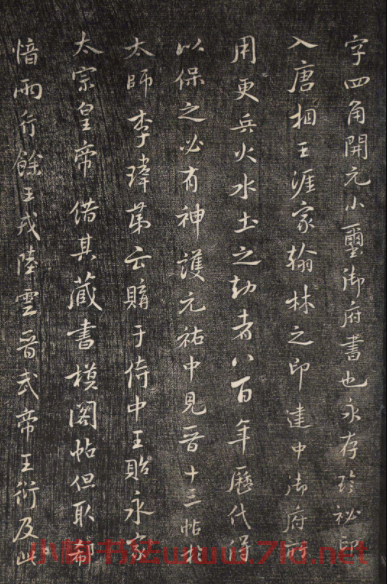 字四角開元小璽御府書也永存珍祕印
入唐相王涯家翰林之印建中御府所
用更兵火水土之劫者八百年歷代得
以保之必有神護元祐中見晉十三帖于
太師李瑋第云購于侍中王貽永家
太宗皇帝借其藏書模閣帖但取郗
愔兩行餘王戎陸雲晉武帝王衍及此
www.7ltd.net